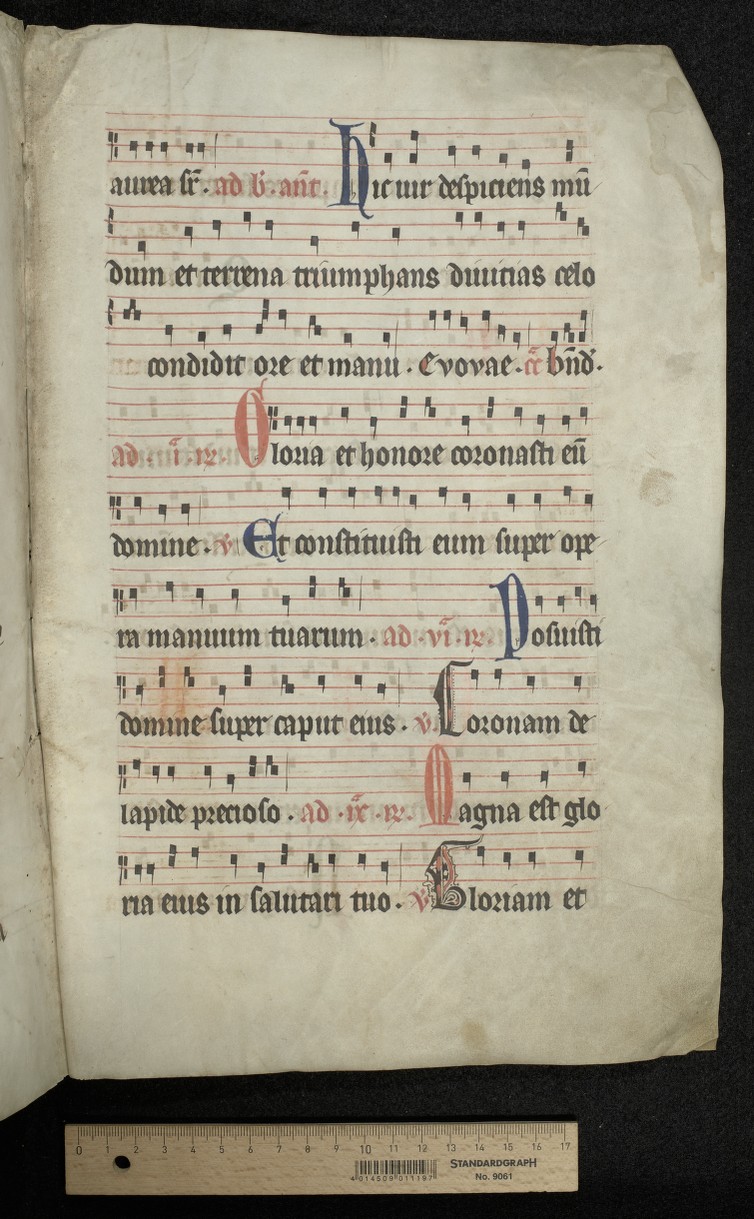 aurea sr̄. ad b̄. ant̄. Hic uir despiciens mū
dum et terrena triumphans diuitias celo
condidit ore et manu. Evovae. cc̄ bn̄d̄.
ad. i. ꝶ. Gloria et honore coronasti eū
domine. v Et constituisti eum super ope
ra manuum tuarum. ad. vi. ꝶ. Posuisti
domine super caput eius. v Coronam de
lapide precioso. ad. ix. ꝶ. Magna est glo
ria eius in salutari tuo. v Gloriam et
0 1 2 3 4 5 6 7 8 9 10 11 12 13 14 15 16 17
4 014509 011197
STANDARDGRAPH
No. 9061